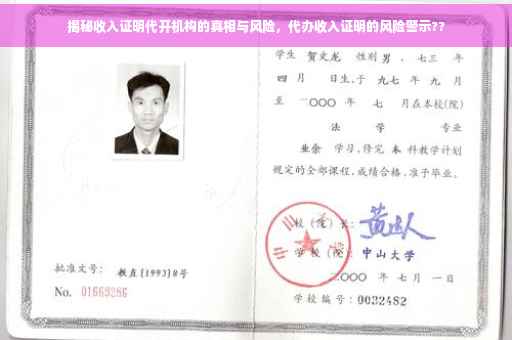 揭秘收入证明代开机构的真相与风险，代办收入证明的风险警示??
学生 贺文龙 性别 男 、七三 年
四 月 日生,于 九七 年 九 月
至 二〇〇〇 年 七 月在本校(院)
法 学 专业
业余 学习,修完 本 科教学计划
规定的全部课程,成绩合格,准予毕业。
校(院)长:
学校(院): 中山大学
二〇〇〇 年 七 月 一 日
批准文号: 教直[1993]8号
No. 01669286
学校编号: 0032482